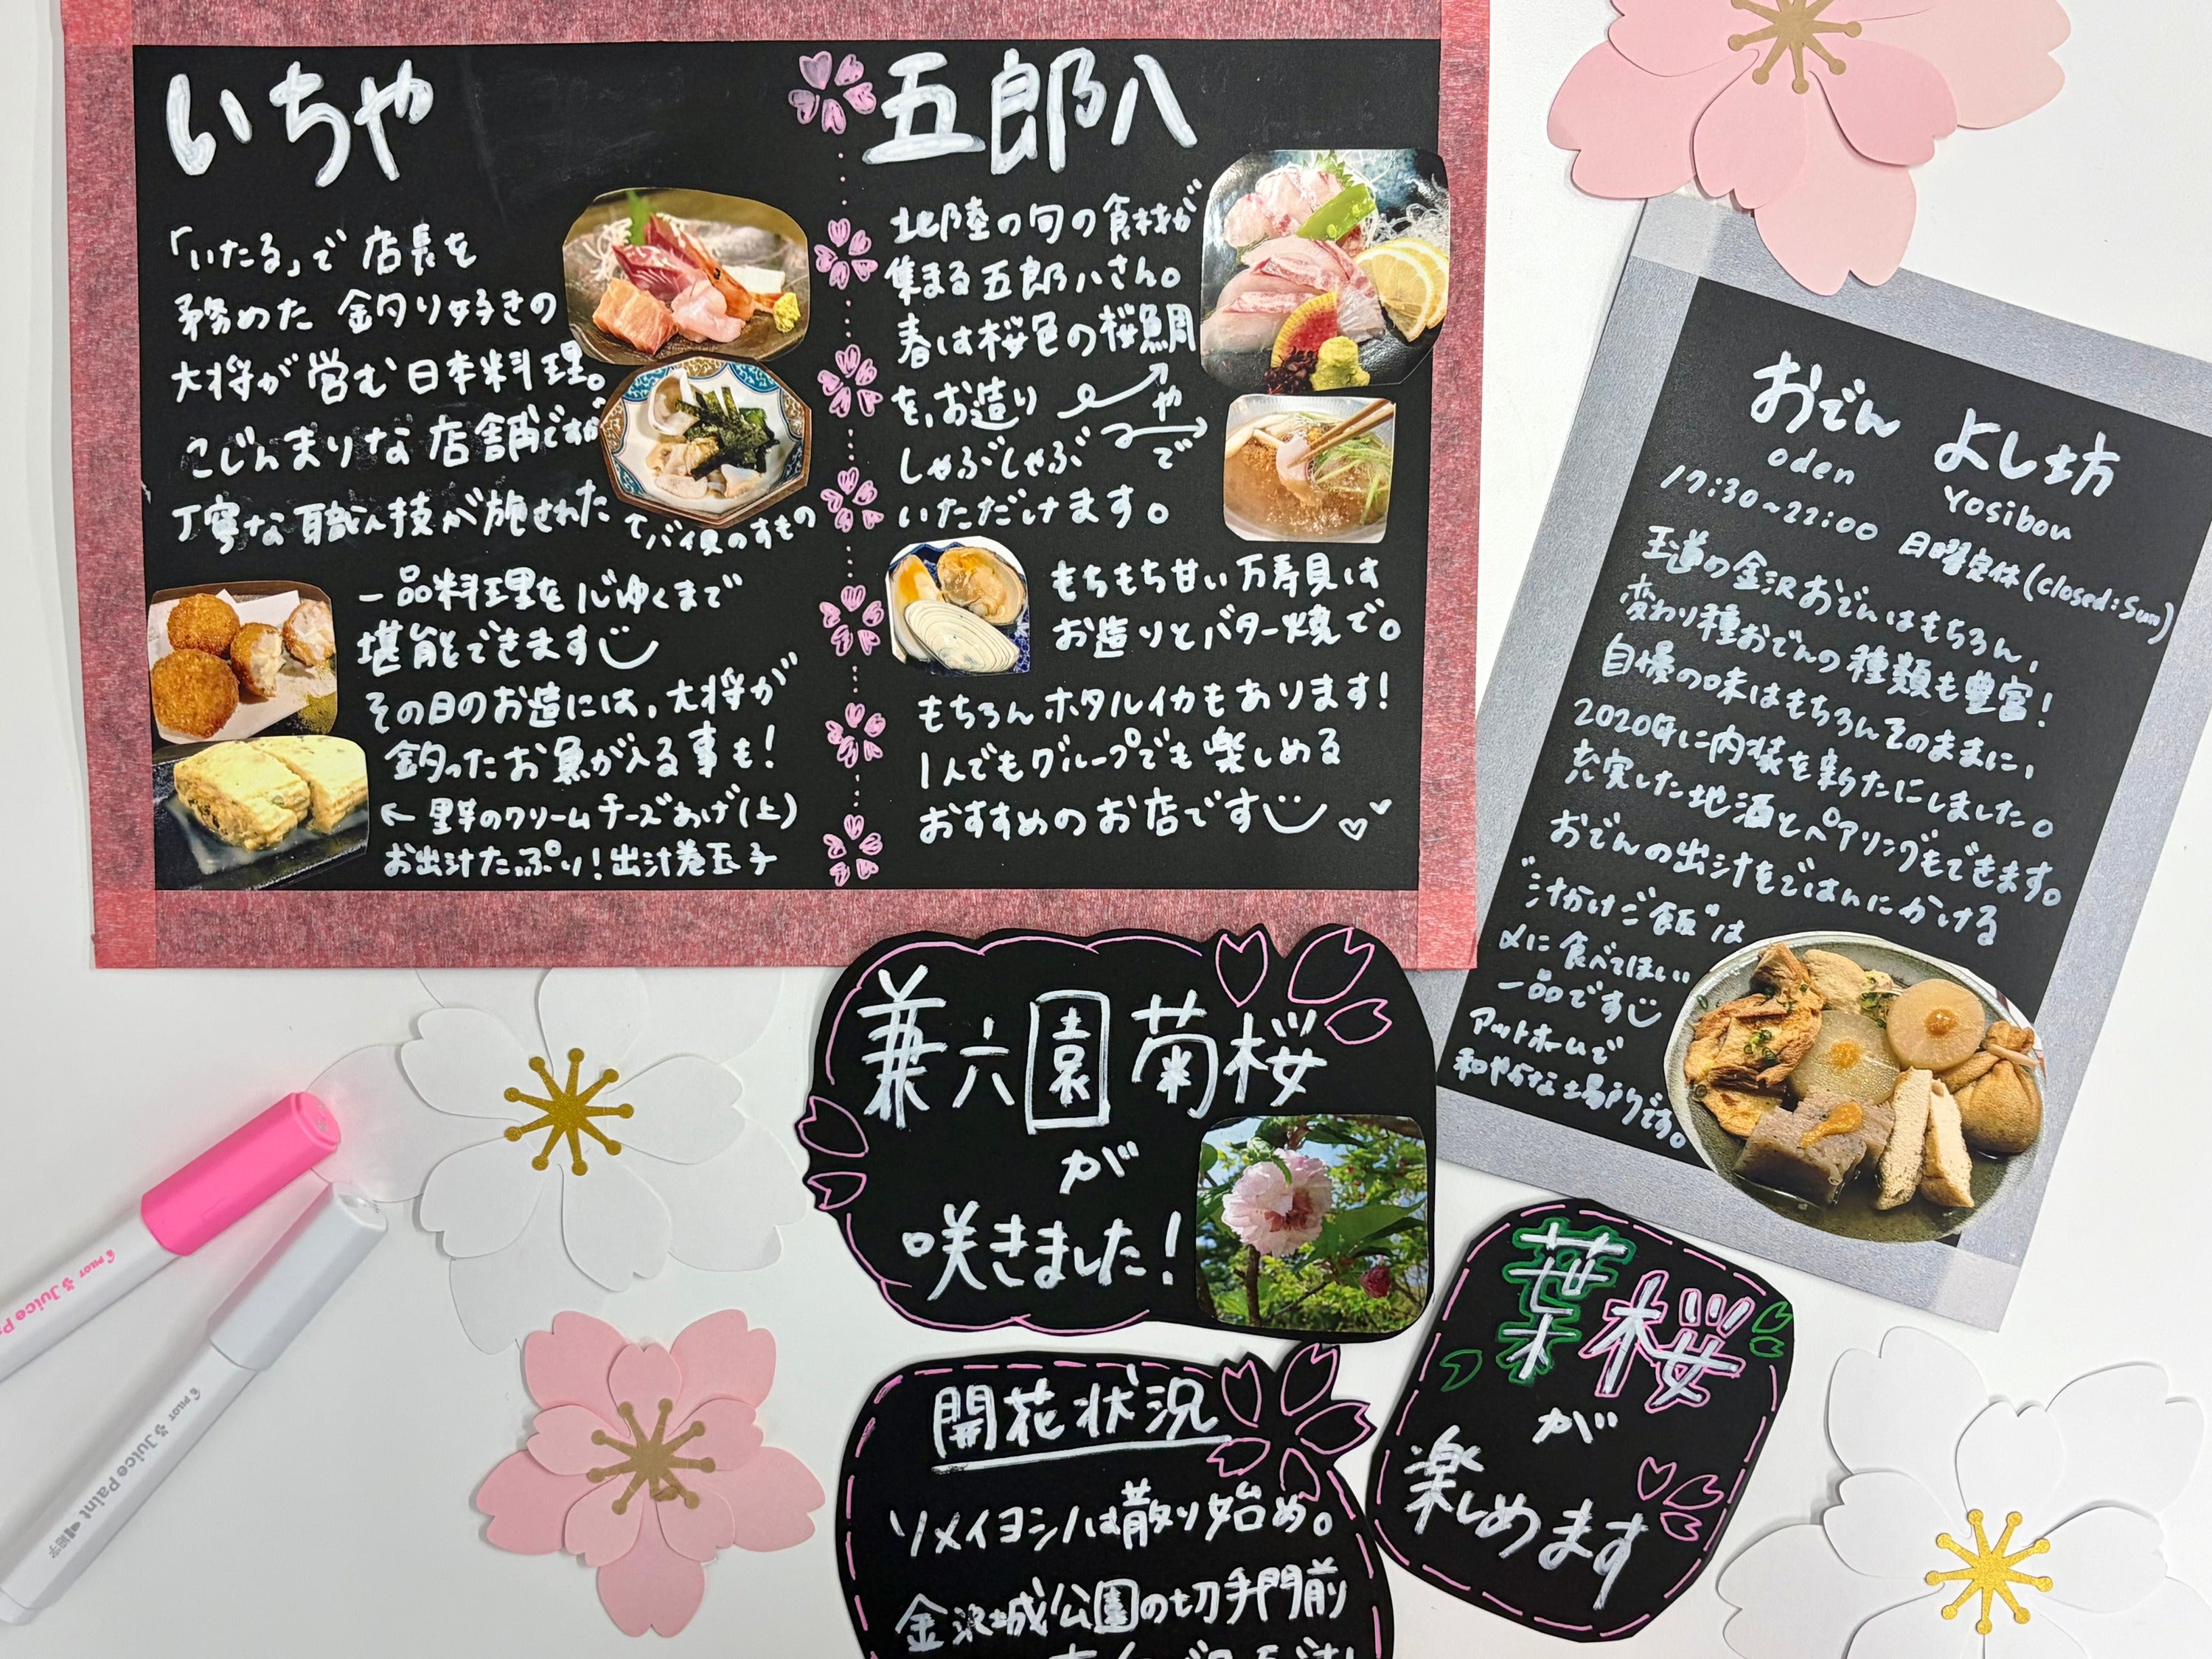 いちや
「いたる」で店長を
務めた 釣り好きの
大将が営む日本料理。
こじんまりな店舗ですが
丁寧な職人技が施された
てバイ貝のすもの
一品料理を心ゆくまで
堪能できます
その日のお造には、大将が
釣ったお魚が入る事も!
← 里芋のクリームチーズあげ(上)
お出汁たっぷり!出汁巻玉子
五郎八
北陸の旬の食材が
集まる五郎八さん。
春は桜色の桜鯛
を、お造り や
しゃぶしゃぶ で
いただけます。
もちもち甘い万寿貝は
お造りとバター焼で。
もちろんホタルイカもあります!
1人でもグループでも楽しめる
おすすめのお店です
おでん よし坊
oden Yosibou
17:30~22:00 日曜定休(closed:Sun)
王道の金沢おでんはもちろん、
変わり種おでんの種類も豊富!
自慢の味はもちろんそのままに、
2020年に内装を新たにしました。
充実した地酒とペアリングもできます。
おでんの出汁をごはんにかける
"汁かけご飯"は
〆に食べてほしい
一品です
アットホームで
和やかな場所です。
兼六園菊桜
が
咲きました!
葉桜
が
楽しめます
開花状況
ソメイヨシノは散り始め。
金沢城公園の切手門前
PILOT Juice P
PILOT Juice Paint 細字